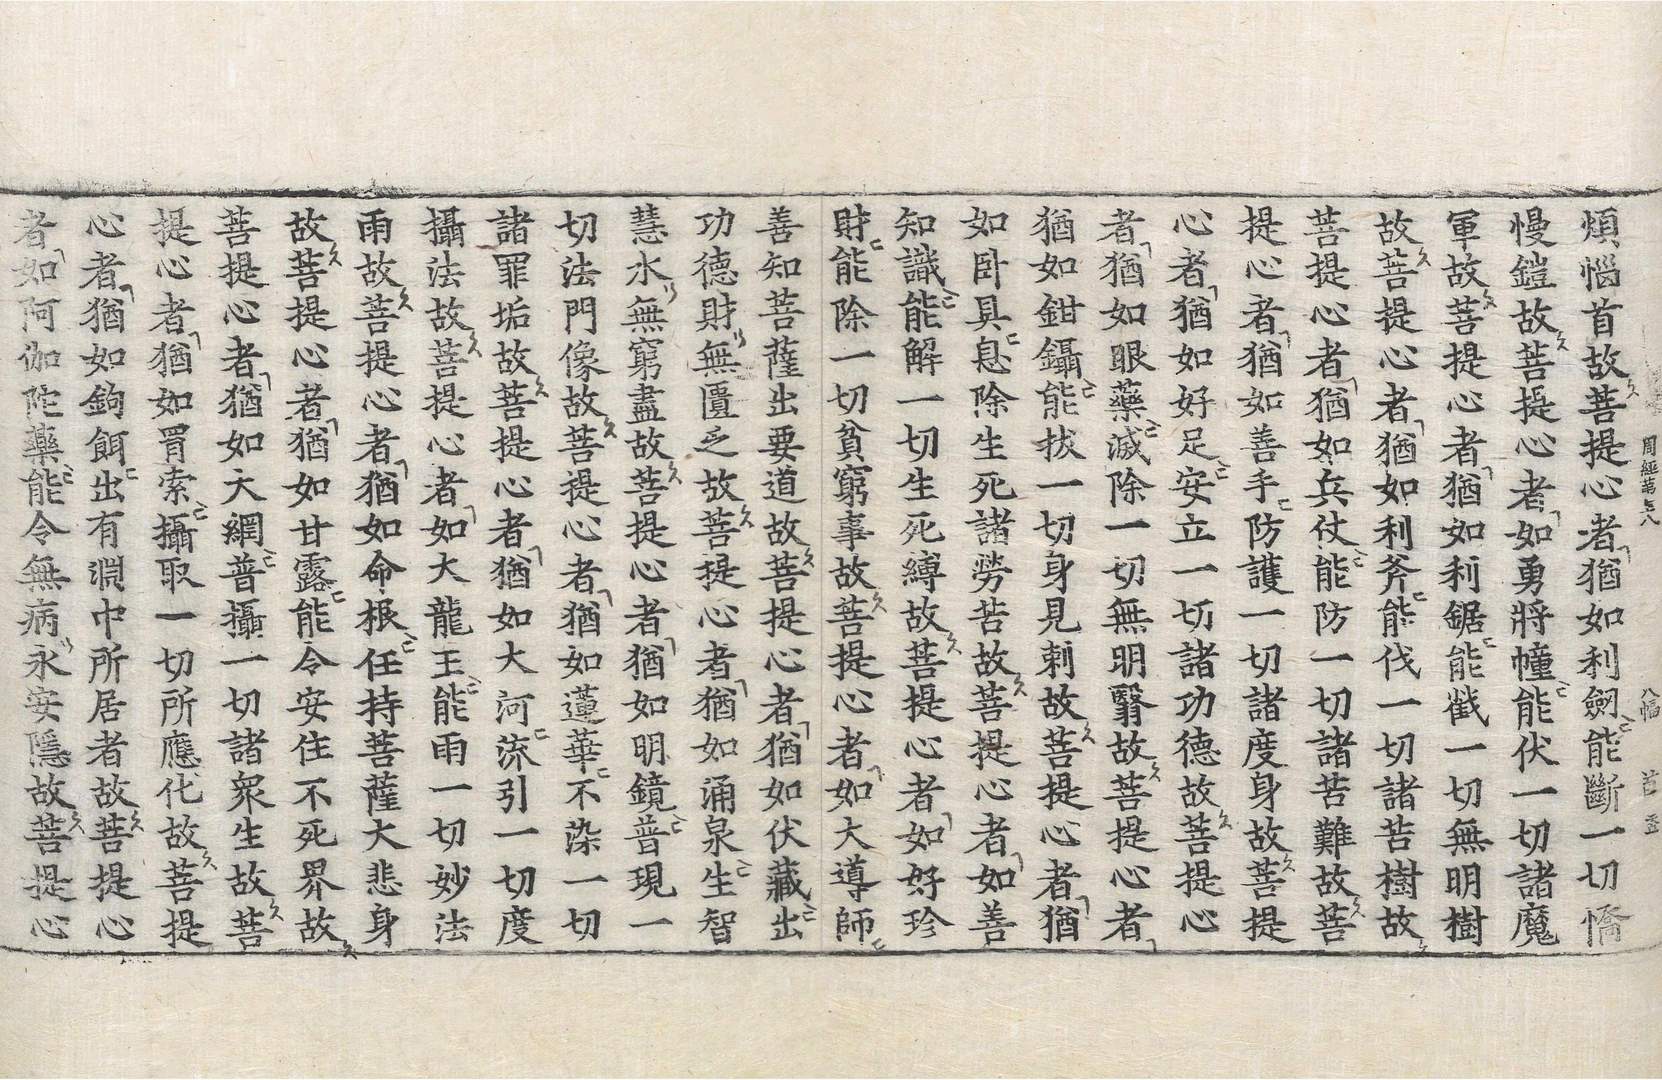 周經第五八
八幅
煩惱首故菩提心者猶如利劒能斷一切憍
慢鎧故菩提心者如勇將幢能伏一切諸魔
軍故菩提心者猶如利鋸能截一切無明樹
故菩提心者猶如利斧能伐一切諸苦樹故
菩提心者猶如兵仗能防一切諸苦難故菩
提心者猶如善手防護一切諸度身故菩提
心者猶如好足安立一切諸功德故菩提心
者猶如眼藥滅除一切無明翳故菩提心者
猶如鉗鑷能拔一切身見刺故菩提心者猶
如卧具息除生死諸勞苦故菩提心者如善
知識能解一切生死縛故菩提心者如好珍
財能除一切貧窮事故菩提心者如大導師
善知菩薩出要道故菩提心者猶如伏藏出
功德財無匱乏故菩提心者猶如涌泉生智
慧水無窮盡故菩提心者猶如明鏡普現一
切法門像故菩提心者猶如蓮華不染一切
諸罪垢故菩提心者猶如大河流引一切度
攝法故菩提心者如大龍王能雨一切妙法
雨故菩提心者猶如命根任持菩薩大悲身
故菩提心者猶如甘露能令安住不死界故
菩提心者猶如大網普攝一切諸衆生故菩
提心者猶如罥索攝取一切所應化故菩提
心者猶如鉤餌出有淵中所居者故菩提心
者如阿伽陀藥能令無病永安隱故菩提心